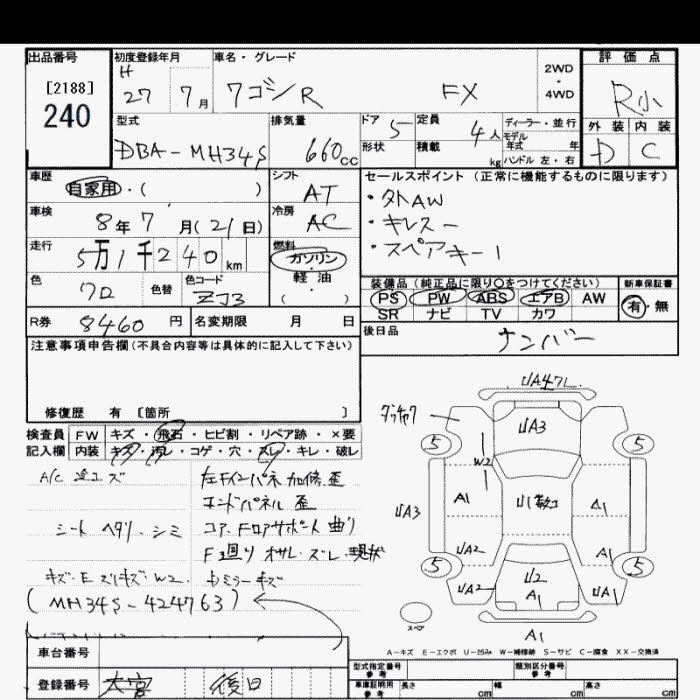 出品番号
[2188]
240
初度登録年月
H
27 7月
車名・グレード
ワゴンR FX
2WD
・
4WD
評価点
R小
外装 内装
D C
型式
DBA-MH34S
排気量
660cc
ドア 5
形状
定員 4人
積載 kg
ディーラー・並行
モデル
年式 年
ハンドル 左・右
車歴
自家用・( )
シフト
AT
セールスポイント (正常に機能するものに限ります)
・タトAW
・キレスー
・スペアキー1
車検
8年7月(21日)
冷房
AC
走行
5万1千240km
燃料
ガソリン
・
軽油
( )
色
クロ
色替
色コード
ZJ3
装備品 (純正品に限り○をつけてください)
PS PW ABS エアB AW
SR ナビ TV カワ
新車保証書
有・無
R券 8460円
名変期限 月 日
後日品
ナンバー
注意事項申告欄(不具合内容等は具体的に記入して下さい)
修復歴 有 [箇所 ]
検査員 FW キズ・飛石・ヒビ割・リペア跡・×要
記入欄 内装 キズ・汚レ・コゲ・穴・スレ・キレ・破レ
シート ヘタリ・シミ
エンドパネル 歪
コア・Fロアサポート 曲り
F廻り オサレ・ズレ・現状
キズ・E スリキズ・W2
ミラーキズ
(MH34S-424763)
UA3
5 5
W2
A1
A1
UA3
UA2
A1
5 5
UA2
U2
A1
UA1
スペア
A1
A-キズ E-エクボ U-凹み W-補修跡 S-サビ C-腐食 XX-交換済
車台番号
登録番号 大宮 後日
型式指定番号
参考
類別区分番号
参考
車庫証明用
参考
長さ cm 幅 cm 高さ cm